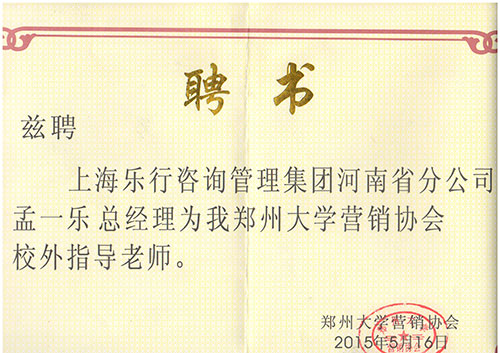 聘书
兹聘
上海乐行咨询管理集团河南省分公司
孟一乐 总经理为我郑州大学营销协会
校外指导老师。
郑州大学营销协会
2015年5月16日